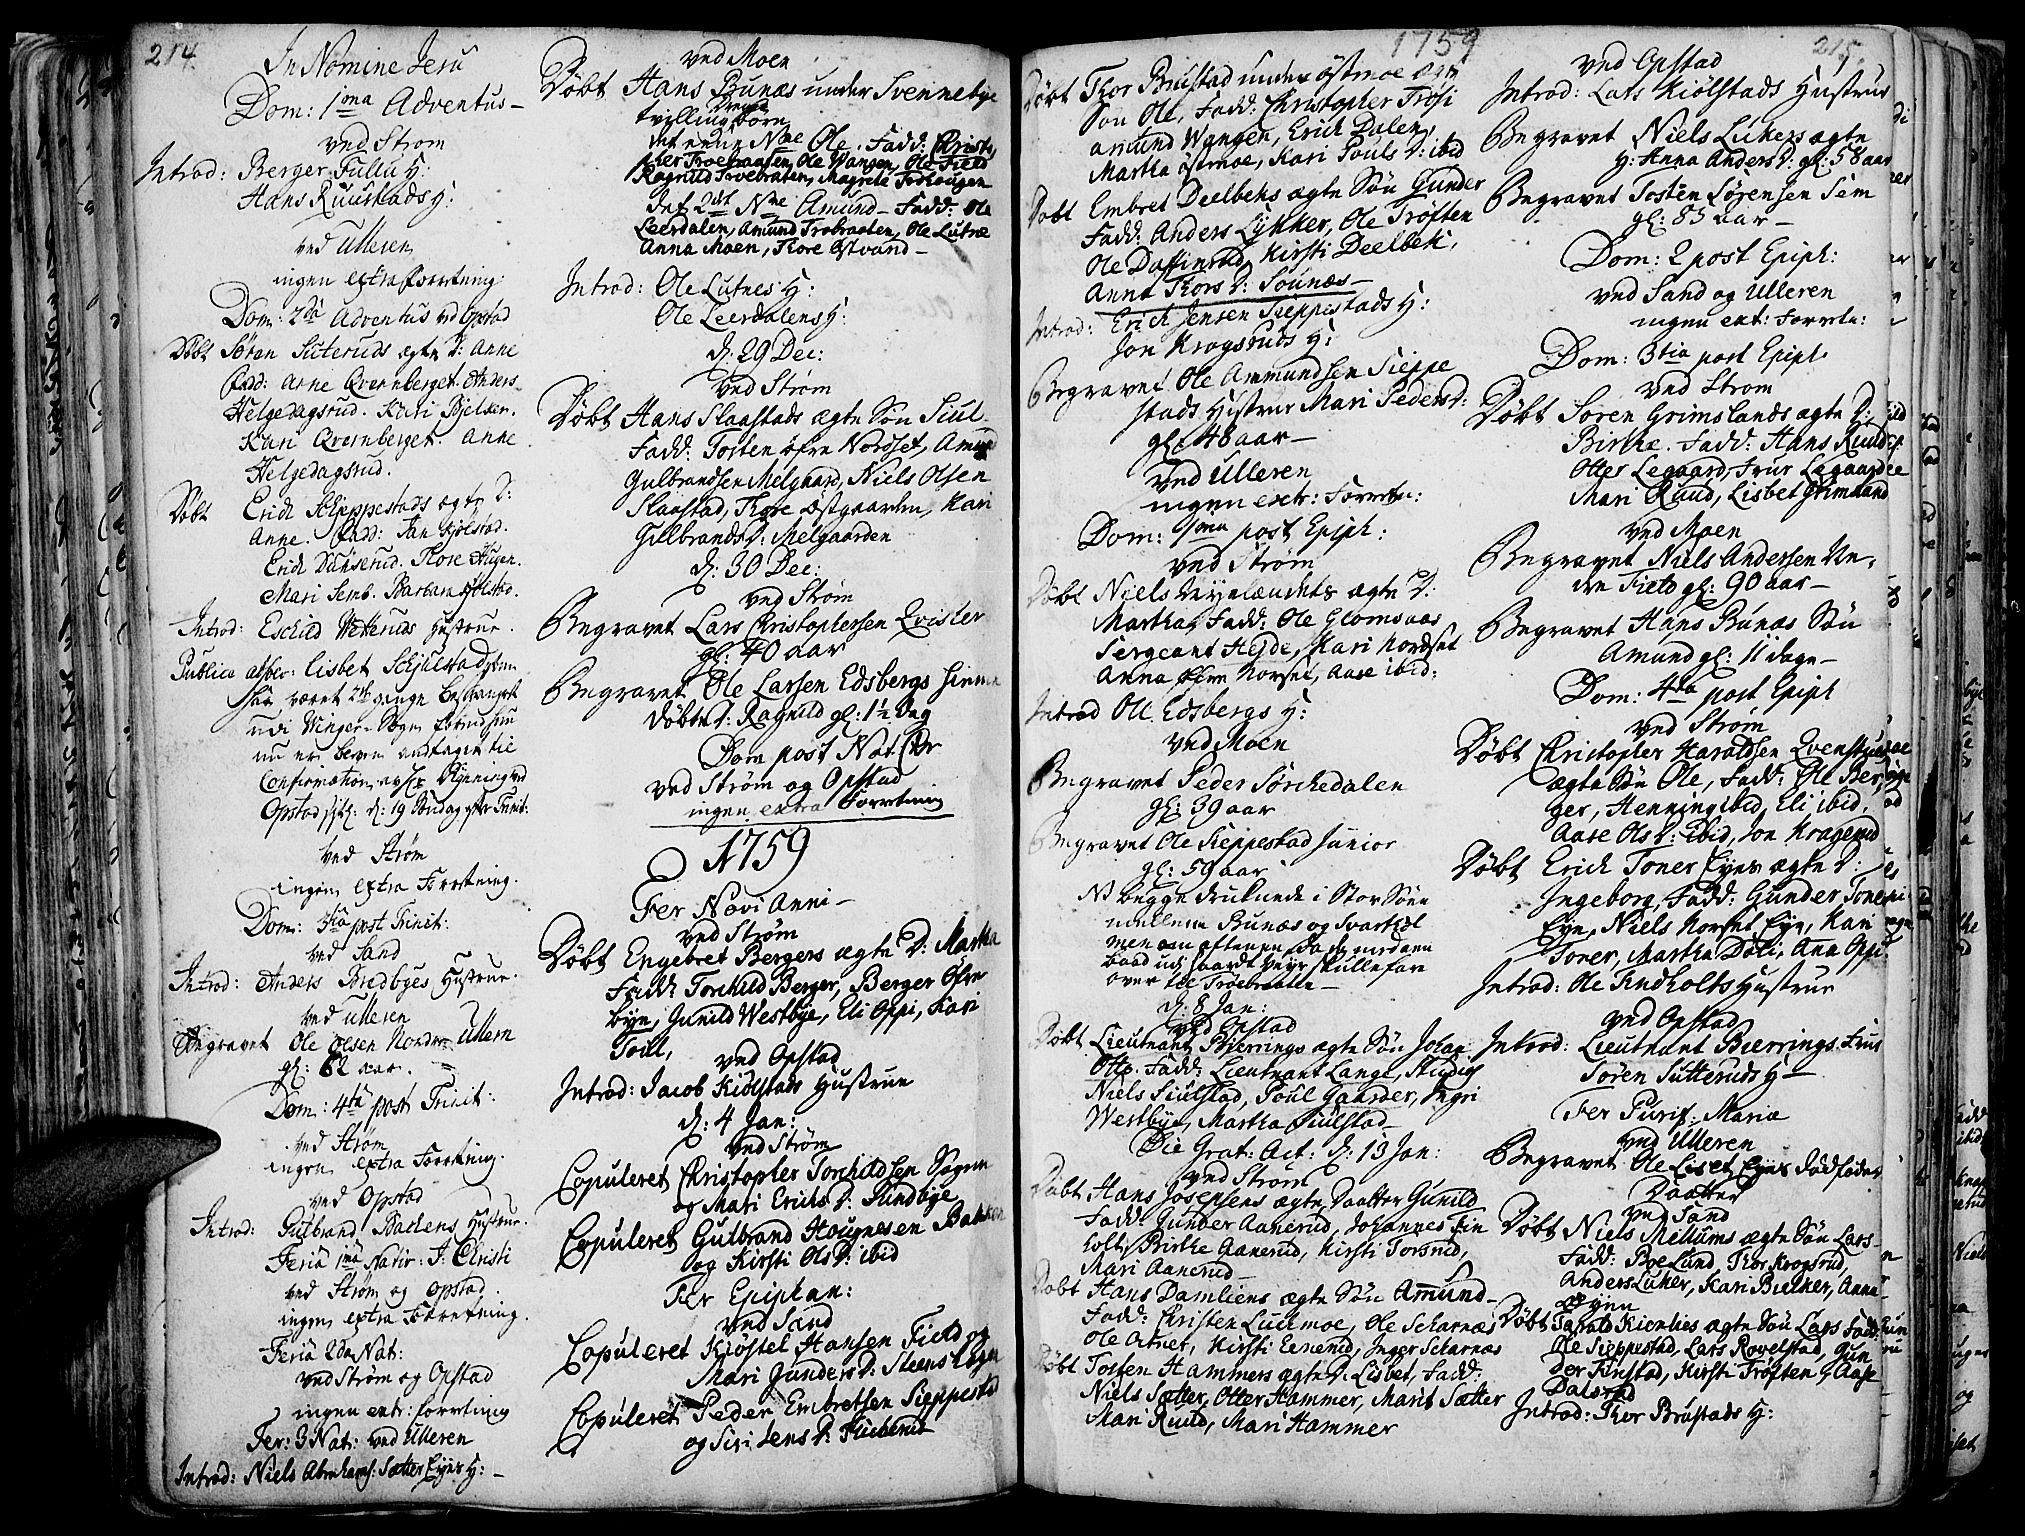 214.
In Nomine Jesu
Dom: 1ma Adventus -
ved Strøm
Introd: Berger Fulu H:
Hans Ruustads H:
ved Ulleren
ingen extra Forretning
Dom: 2da Adventus ved Opstad
Døbt Søren Suteruds ægte D: Anne
Fadd: Arne Qvernberget. Anders
Helgedagsrud. Kari Bjelker.
Kari Qvernberget. Anne
Helgedagsrud.
Døbt Erich Schippestads ægte D:
Anne. Fadd: Jan Kjølstad.
Erich Dunserud. Thore Hugen.
Mari Semb. Barbara Kjølstad.
Introd: Eschild Wetteruds Hustrue.
Publice absolv: Lisbet Schjulstad
har været 2de gange besvangret
udi Winger Sogn
nu er bleven antagen til
Confirmation
Opstad d: 19 Søndag efter Trinit:
ved Strøm
ingen extra Forretning.
Dom: 3tia post Trinit:
ved Sand
Introd: Anders Bredbyes Hustrue.
ved Ulleren
Begravet Ole Olsen Nordre Ullern
gl: 62 aar.
Dom: 4ta post Trinit:
ved Strøm
ingen extra Forretning.
ved Opstad
Introd: Gulbrand Baclens Hustrue.
Feria 1ma Nativ: J: Christi
ved Strøm og Opstad.
ingen extra Forretning.
Feria 2da Nat:
ved Strøm og Opstad
ingen extr: Forretning
Fer: 3 Nat: ved Ulleren
Introd: Niels Abrahams: Sætter Eyes H: -
ved Moen
Døbt Hans Bunæs under Svennebye
tvilling børn
det eene Nne Ole. Fadd: Christo
pher Troebraaten, Ole Wangen, Ole Field
Ragnild Troebraten, Magrete Troshaugen
Det 2det Nne Amund - Fadd: Ole
Leerdalen, Amund Trobraaten, Ole Lutnæ
Anna Moen, Thore Østvand -
Introd: Ole Lutnes H:
Ole Leerdalens H:
d: 29 Dec:
ved Strøm
Døbt Hans Slaastads ægte Søn Siul
Fadd: Tosten øfre Nordset, Amund
Gulbrandsen Melgaard, Niels Olsen
Slaastad, Thore Østgaarden, Kari
Gulbrands D: Melgaarden
d: 30 Dec:
ved Strøm
Begravet Lars Christophersen Qvisler
gl: 40 aar
Begravet Ole Larsen Edsbergs hiemme
døbte D: Ragnild gl: 1½ Dag
Dom post Nat: Chr
ved Strøm og Opstad
ingen extra Forretning
1759
Fer Novi Anni -
ved Strøm
Døbt Engebret Bergers ægte D: Martha
Fadd: Torchild Berger, Berger Øfre
byn, Gunild Westbye, Eli Oppi, Kari
Toill,
ved Opstad
Introd: Jacob Kiølstads Hustrue
d: 4 Jan:
ved Strøm
Copuleret Christopher Torchildsen Sogne
og Mari Erichs D: Sundbye
Copuleret Gulbrand Haugnesen Bakken
og Kirsti Ols D: ibid
Fer Epiphan:
ved Sand
Copuleret Kiøstel Hansen Field og
Mari Gunders D: Steens Eegn
Copuleret Peder Embretsen Sieppestad
og Siri Jens D: Fuiberud
1759
215.
Døbt Thor Brustad under Østmoe ægte
Søn Ole, Fadd: Christopher Trøsi
Amund Wangen, Erich Dalen,
Martha Østmoe, Kari Pouls D: ibid
Døbt Embret Deelbeks ægte Søn Gunder
Fadd: Anders Lykker, Ole Trøften
Ole Daffinrud, Kirsti Deelbek,
Anna Thors D: Sounæs -
Introd: Erich Jensen Sieppestads H:
Jon Krogsruds H:
Begravet Ole Ammundsen Sieppe
stads Hustrue Mari Peders D:
gl: 48 aar -
ved Ulleren
ingen extr: Forretn:
Dom: 1ma post Epiph:
ved Strøm
Døbt Niels Nylændets ægte D:
Martha, Fadd: Ole Glomsaas
Sergeant Hejde, Kari Nordset
Anna Øfre Norset, Aase ibid:
Introd Ole Edsbergs H:
ved Moen
Begravet Peder Sørchedalen
gl: 39 aar
Begravet Ole Sieppestad Junior
gl: 59 aar
NB begge druknede i Stor Søen
mellem Bunæs og Svartføl
men om aftenen, da de med een
baad udi haardt veyr skulle fare
over til Trøebraaten -
d: 8 Jan:
ved Opstad
Døbt Lieutnant Bierrings ægte Søn Johan
Otto. Fadd: Lieutnant Lange, Studios
Niels Siulstad, Poul Gaarder, Ingri
Westbye, Martha Siulstad -
Die Grat: Act: d: 13 Jan:
ved Strøm
Døbt Hans Josepsens ægte Daatter Gunild
Fadd: Gunder Aanerud, Johannes Fin
holt, Birthe Aanerud, Kirsti Torsrud,
Mari Aanerud -
Døbt Hans Damliens ægte Søn Amund -
Fadd: Christen Luckmoe, Ole Scharnæs
Ole Arnet, Kirsti Eenerud, Inger Scharnæs
Døbt Tosten Hammers ægte D: Lisbet, Fadd:
Niels Sætter, Otter Hammer, Marit Sætter
Mari Ruud, Mari Hammer
ved Opstad
Introd: Lars Kiølstads Hustrue
Begravet Niels Likers ægte
H: Anna Anders D: gl: 58 aar
Begravet Tosten Sørensen Sem
gl: 83 aar -
Dom: 2 post Epiph:
ved Sand og Ulleren
ingen ext: Forretn:
Dom: 3tia post Epiph
ved Strøm
Døbt Søren Grimslands ægte D:
Birthe. Fadd: Hans Ruud,
Otter Legaard, Frue Lægaard
Mari Ruud, Lisbet Grimsland
ved Moen
Begravet Niels Andersen Ne-
dre Field gl: 90 aar -
Begravet Hans Bunæs Søn
Amund gl: 11 dage -
Dom: 4ta post Epiph
ved Strøm
Døbt Christopher Haraldsen Qvenstue
ægte Søn Ole, Fadd: Ole Ber
ger, Henning ibid, Eli ibid,
Aase Ols D: ibid, Jon Kragerud
Døbt Erich Toner Eyes ægte D:
Ingeborg, Fadd: Gunder Toner
Eye, Niels Norset Eye, Kari
Toner, Martha Doli, Ana Oppi
Introd: Ole Findholts Hustrue
ved Opstad
Introd: Lieutnant Bierrings Frue
Søren Sutteruds H -
Fer Purif: Mariæ
ved Ulleren
Begravet Ole Liset Eyes dødføder
Daatter
ved Sand
Døbt Niels Mellums ægte Søn Lars
Fadd: Poe Lund, Thor Krogsrud,
Anders Luker, Kari Bielker, Anna
Øyen
Døbt Harald Kienlies ægte Søn Lars Fadd:
Ole Sieppestad, Lars Rovelstad, Gun
der Finstad, Kirsti Trøften, Aase
Dalsrud
Introd: Thor Brustads H: